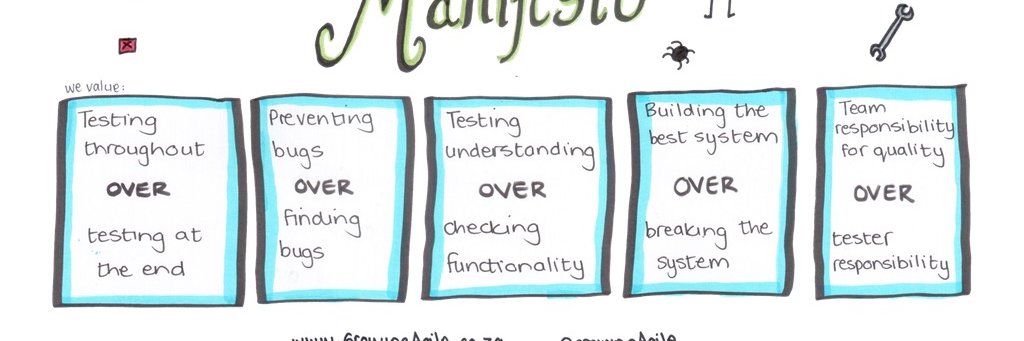 Manifesto
we value:
Testing
throughout
OVER
testing at
the end
Preventing
bugs
OVER
finding
bugs
Testing
understanding
OVER
checking
functionality
Building the
best system
OVER
breaking the
system
Team
responsibility
for quality
OVER
tester
responsibility
www.GrowingAgile.co.za @GrowingAgile